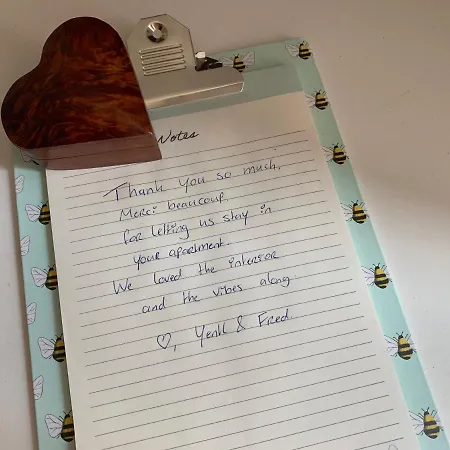 Notes
Thank you so much,
Merci beaucoup,
for letting us stay in
your apartment.
We loved the interior
and the vibes along.
♡, Yentl & Fred